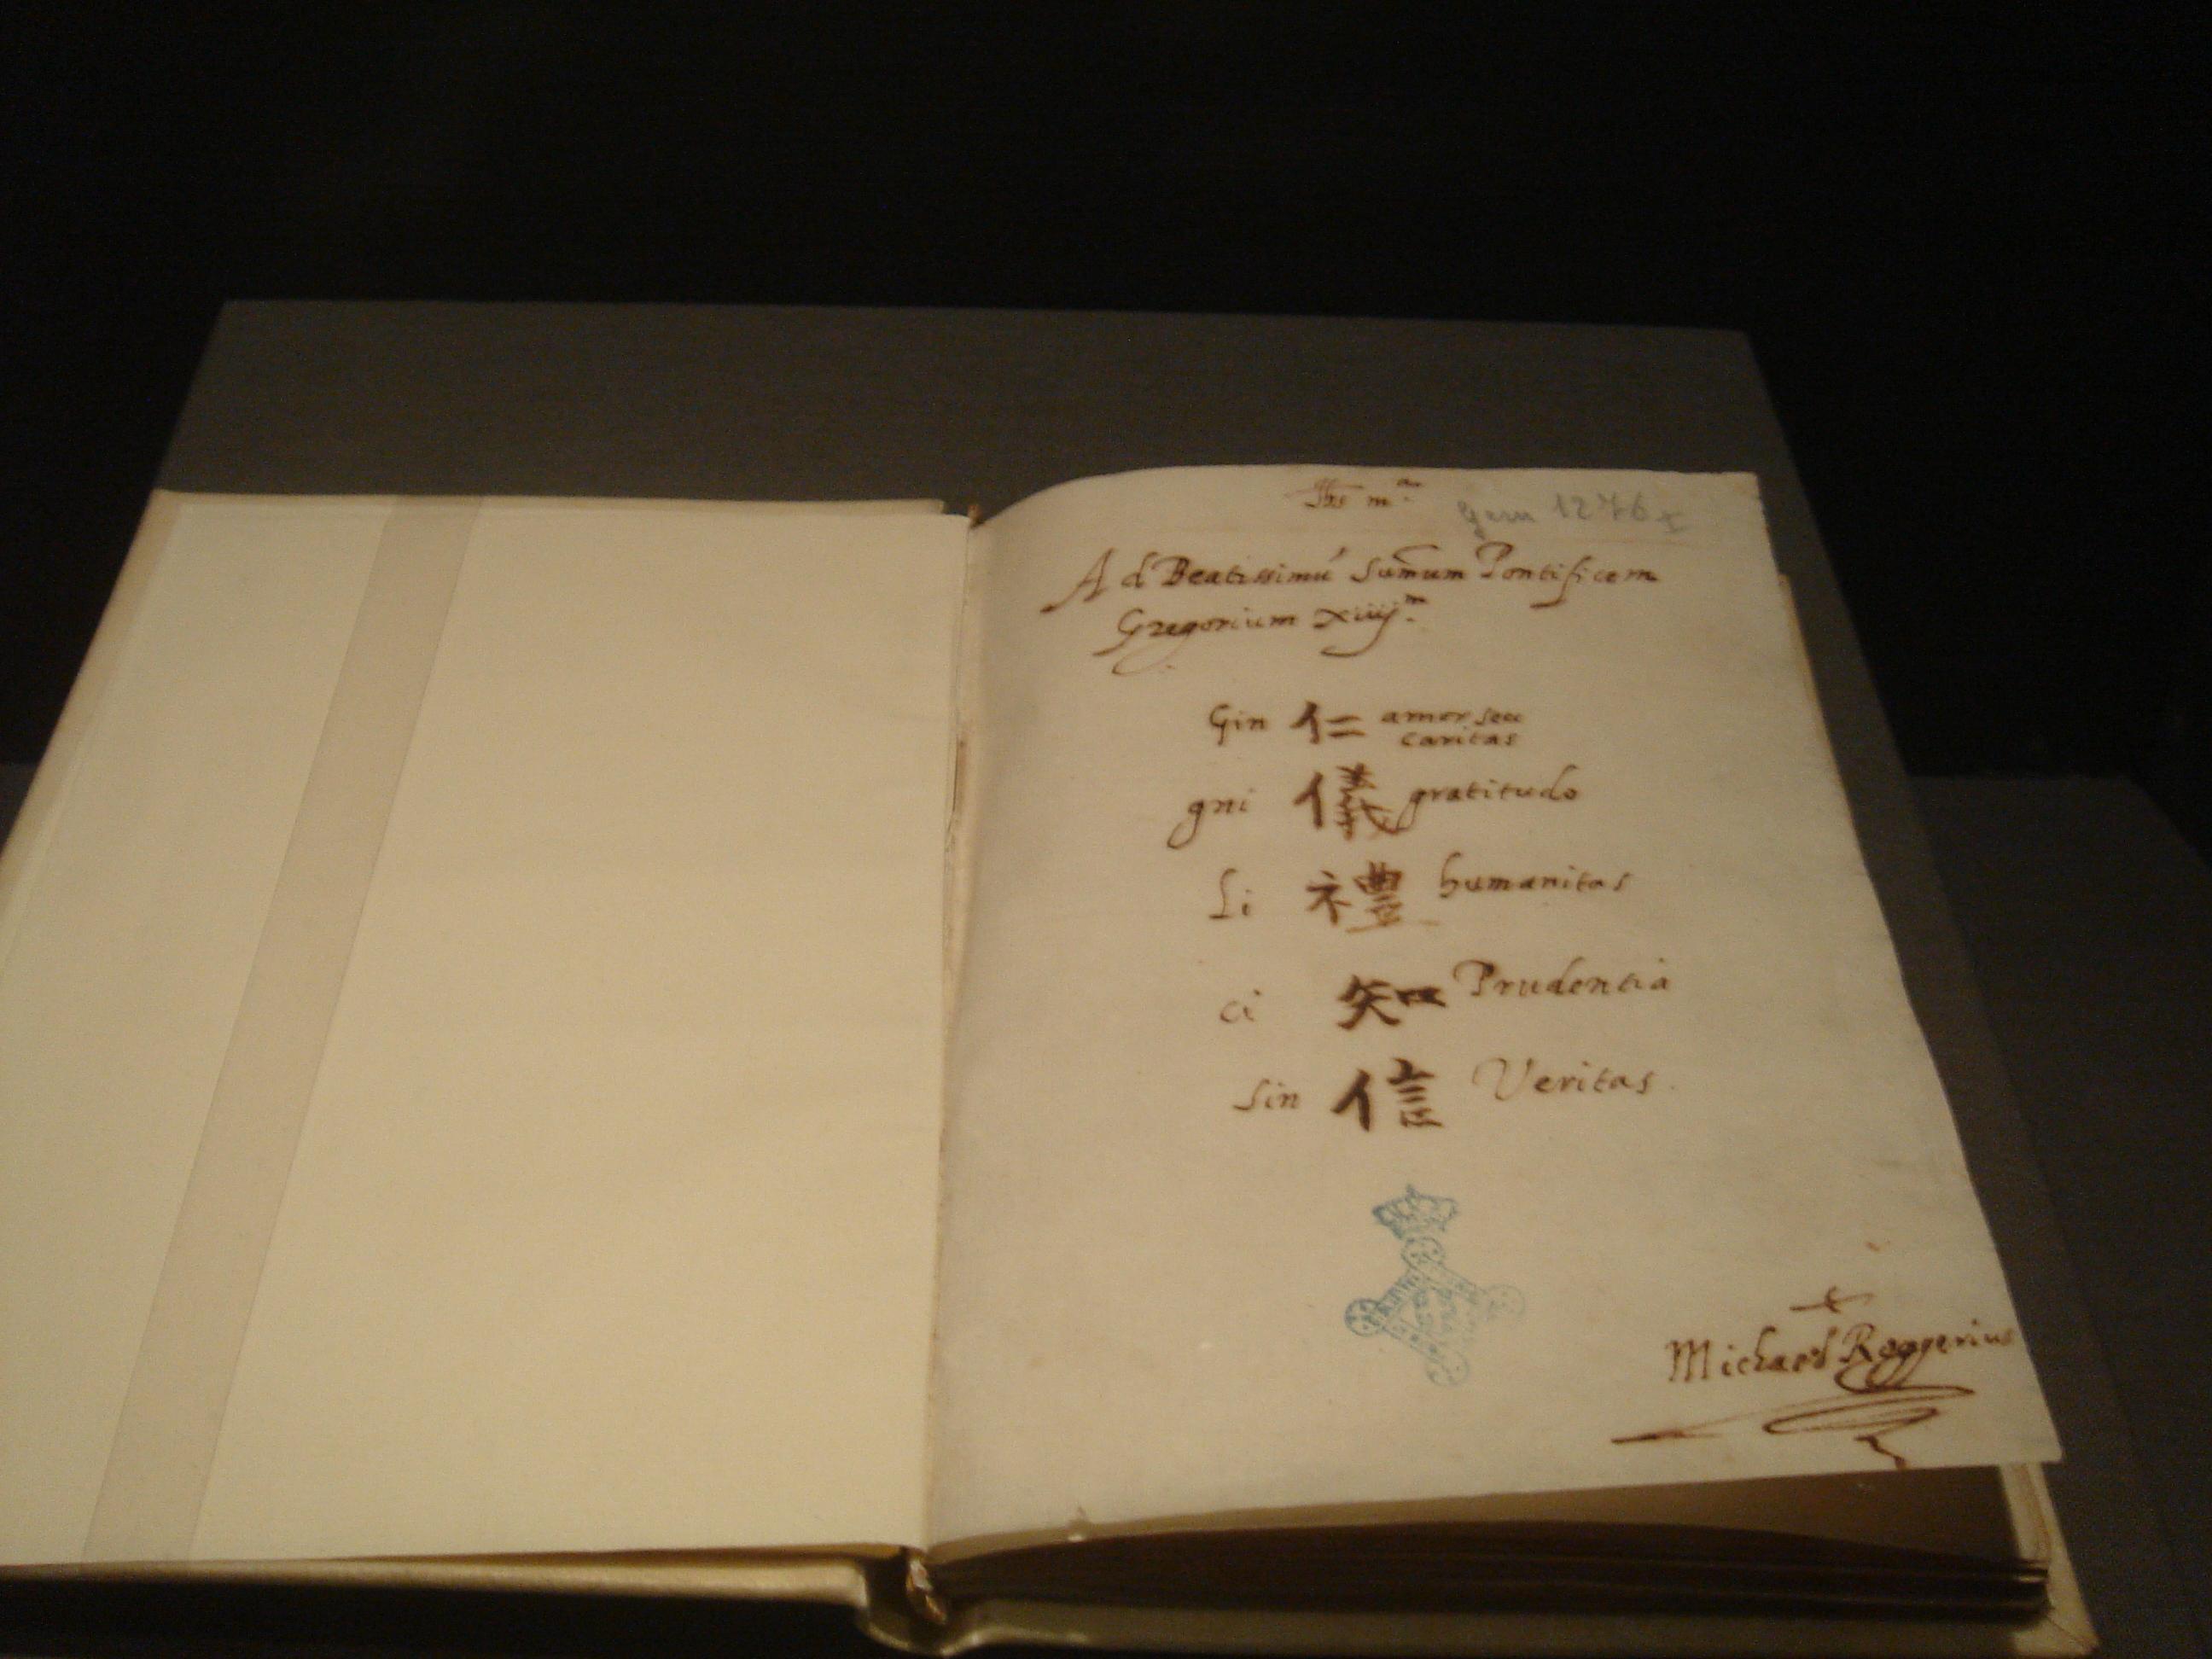 Jhs mª.
Gen 1276
Ad Beatissimū Sum̄um Pontificem
Gregorium xiiijᵐ.
Gin 仁 amor seu
caritas
gni 儀 gratitudo
Li 禮 humanitas
ci 知 Prudentia
Sin 信 Veritas.
Michael Roggerius